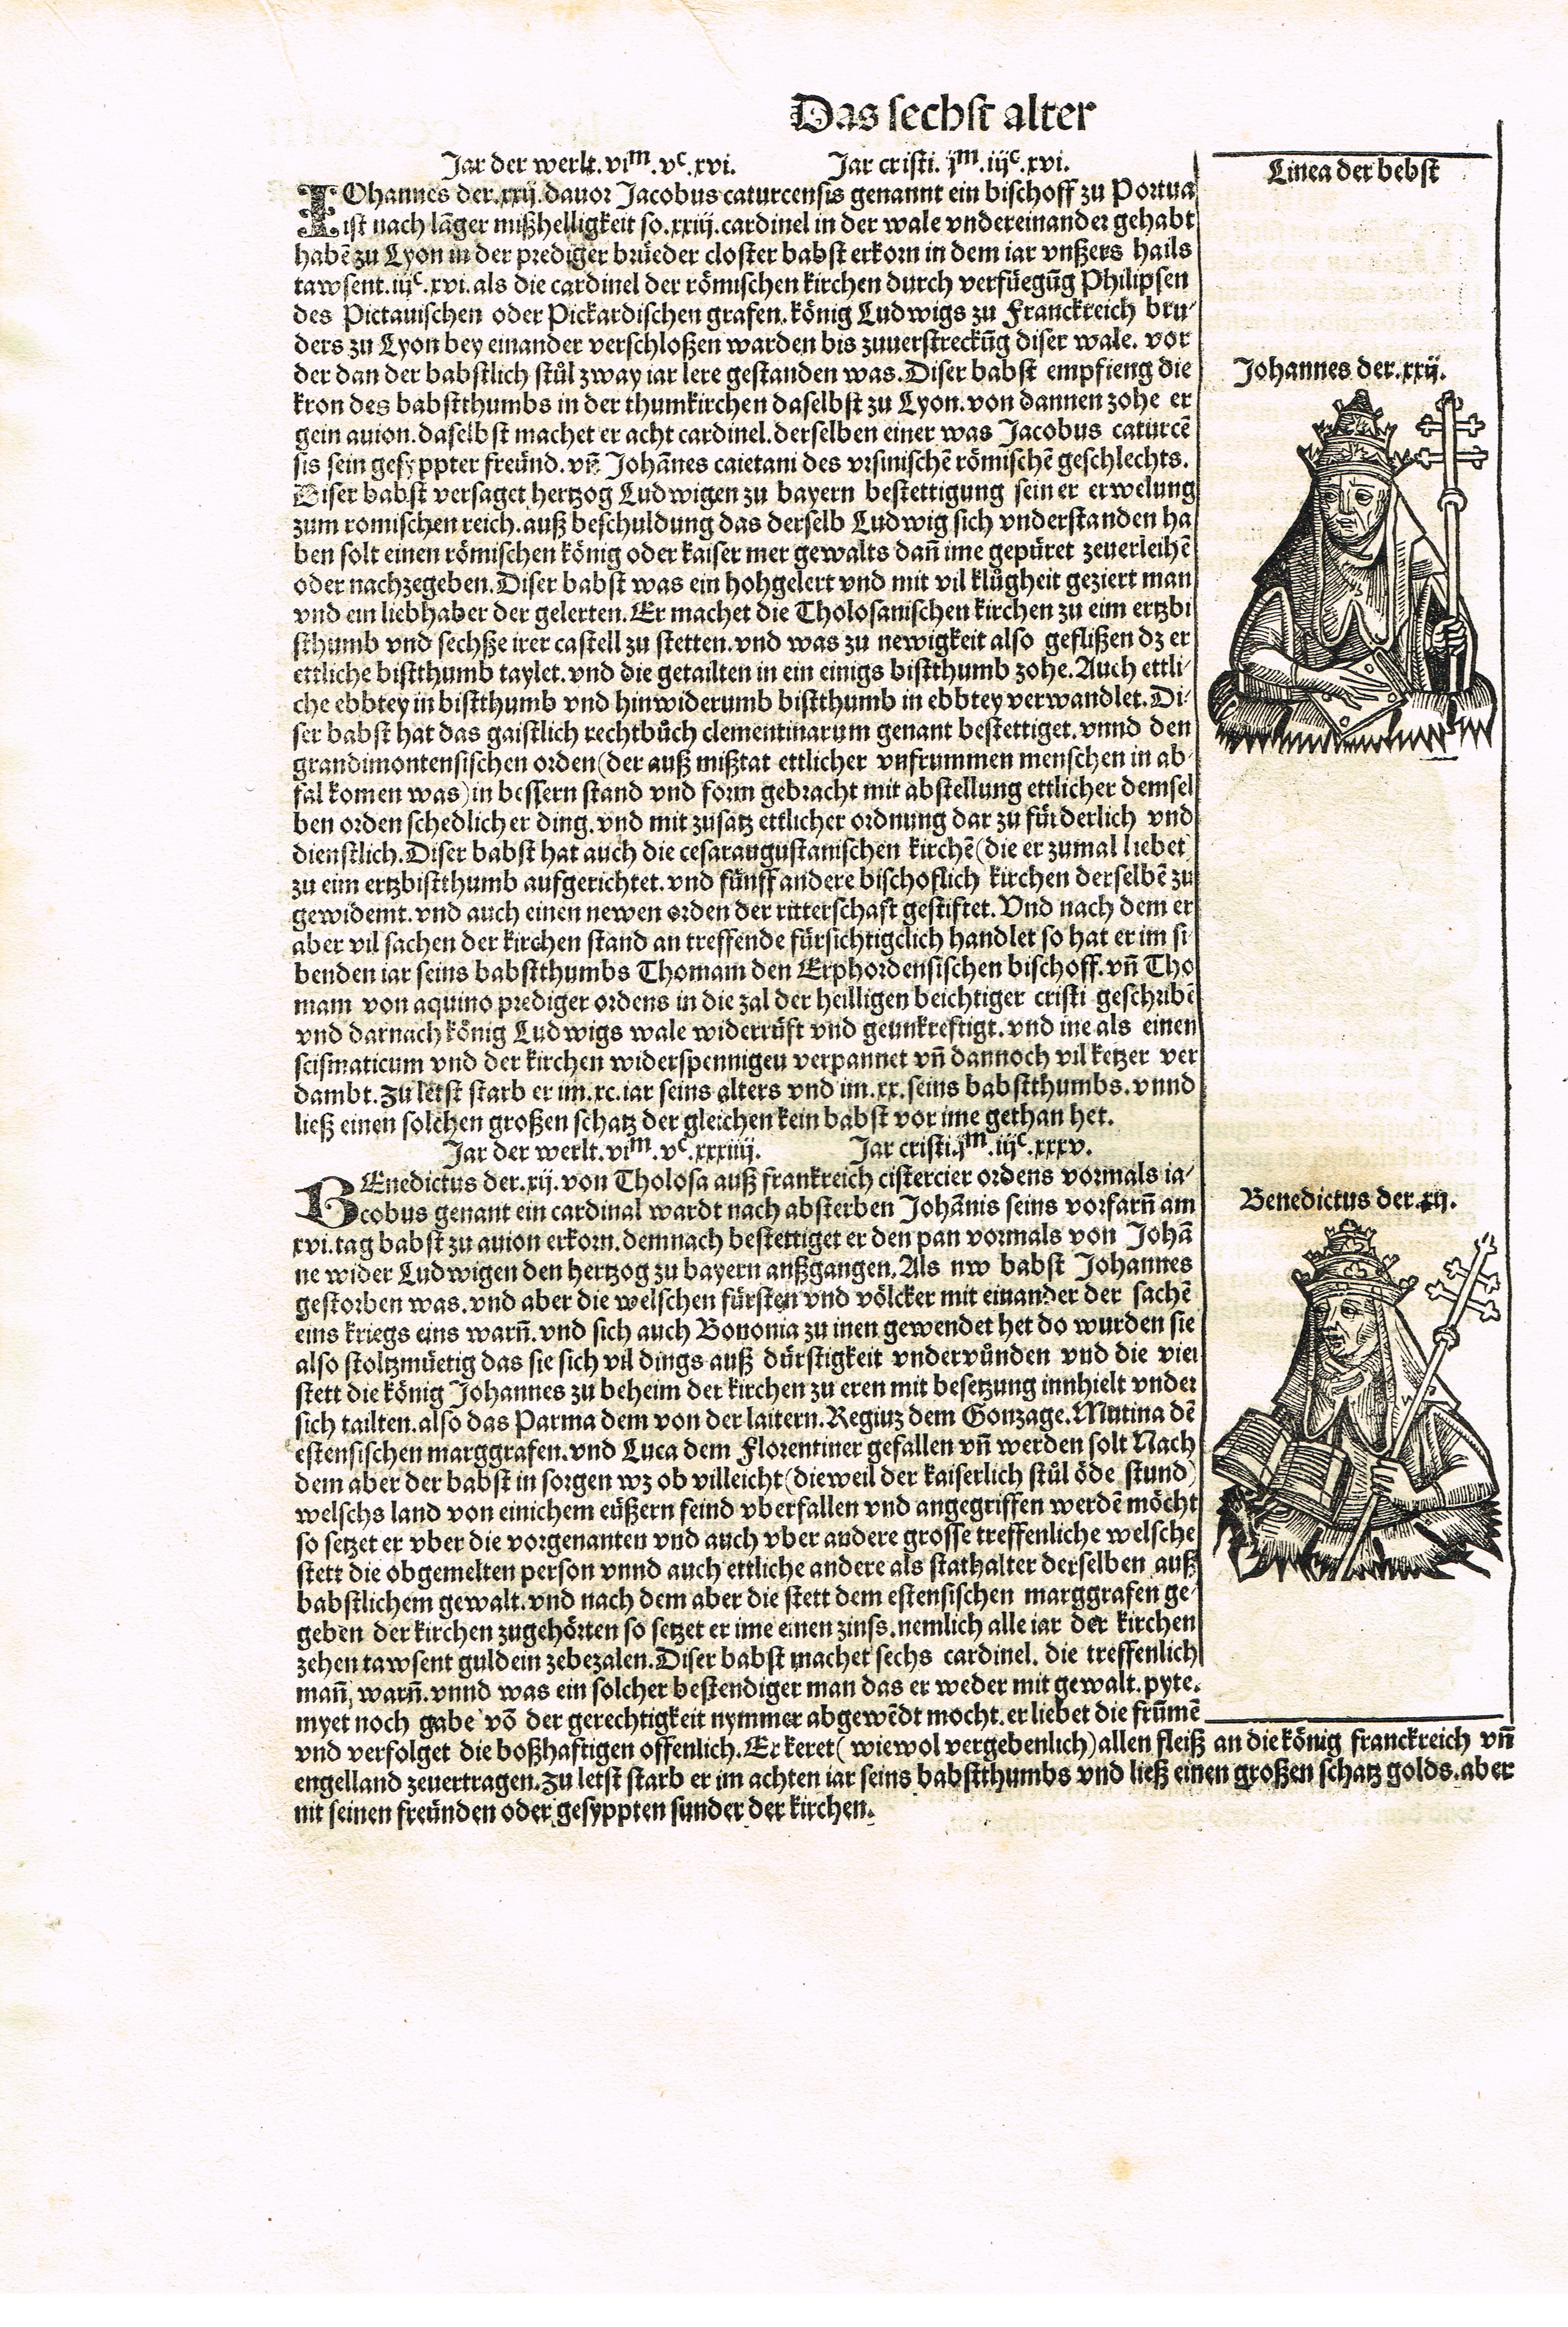 Das sechst alter
Jar der werlt.vi^m.v^c.xvi. Jar cristi. j^m.iij^c.xvi.
Linea der bebst
IOhannes der.xxij.dauor Jacobus caturcensis genannt ein bischoff zu Portua
ist nach lãger mißhelligkeit so.xxiij.cardinel in der wale vndereinander gehabt
habẽ zu Lyon in der prediger brüeder closter babst erkorn in dem iar vnßers hails
tawsent.iij^c.xvi.als die cardinel der römischen kirchen durch verfüegũg Philipsen
des Pictauischen oder Pickardischen grafen.könig Ludwigs zu Franckreich bru-
ders zu Lyon bey einander verschloßen warden bis zuuerstreckũg diser wale. vor
der dan der babstlich stůl zway iar lere gestanden was.Diser babst empfieng die
kron des babstthumbs in der thumkirchen daselbst zu Lyon.von dannen zohe er
gein auion.daselbst machet er acht cardinel.derselben einer was Jacobus caturcẽ
sis sein gesyppter freünd.vñ Johãnes caietani des vrsinischẽ römischẽ geschlechts.
Diser babst versaget hertzog Ludwigen zu bayern bestettigung seiner erwelung
zum romischen reich.auß beschuldung das derselb Ludwig sich vnderstanden ha
ben solt einen römischen könig oder kaiser mer gewalts dañ ime gepüret zeuerleihẽ
oder nachzegeben.Diser babst was ein hohgelert vnd mit vil klůgheit geziert man
vnd ein liebhaber der gelerten.Er machet die Tholosanischen kirchen zu eim ertzbi
sthumb vnd sechße irer castell zu stetten.vnd was zu newigkeit also geflißen dz er
ettliche bistthumb taylet.vnd die getailten in ein einigs bistthumb zohe.Auch ettli-
che ebbtey in bistthumb vnd hinwiderumb bistthumb in ebbtey verwandlet.Di-
ser babst hat das gaistlich rechtbůch clementinarum genant bestettiget.vnnd den
grandimontensischen orden(der auß mißtat ettlicher vnfrummen menschen in ab-
fal komen was)in bessern stand vnd form gebracht mit abstellung ettlicher demsel
ben orden schedlicher ding.vnd mit zusatz ettlicher ordnung dar zu fürderlich vnd
dienstlich.Diser babst hat auch die cesaraugustanischen kirchẽ(die er zumal liebet)
zu eim ertzbistthumb aufgerichtet.vnd fünff andere bischoflich kirchen derselbẽ zu
gewidemt.vnd auch einen newen orden der ritterschaft gestiftet.Vnd nach dem er
aber vil sachen der kirchen stand an treffende fürsichtigclich handlet so hat er im si
benden iar seins babstthumbs Thomam den Erphordensischen bischoff.vñ Tho
mam von aquino prediger ordens in die zal der heilligen beichtiger cristi geschribẽ
vnd darnach könig Ludwigs wale widerrüft vnd geunkreftigt.vnd ine als einen
scismaticum vnd der kirchen widerspennigen verpannet vñ dannoch vil ketzer ver
dambt.Zu letst starb er im.xc.iar seins alters vnd im.xx.seins babstthumbs.vnnd
ließ einen solchen großen schatz der gleichen kein babst vor ime gethan het.
Johannes der.xxij.
Jar der werlt.vi^m.v^c.xxxiiij. Jar cristi.j^m.iij^c.xxxv.
BEnedictus der.xij.von Tholosa auß frankreich cistercier ordens vormals ia-
cobus genant ein cardinal wardt nach absterben Johãnis seins vorfarñ am
xvi.tag babst zu auion erkorn.demnach bestettiget er den pan vormals von Johã
ne wider Ludwigen den hertzog zu bayern außgangen.Als nw babst Johannes
gestorben was.vnd aber die welschen fürsten vnd völcker mit einander der sachẽ
eins kriegs eins warñ.vnd sich auch Bononia zu inen gewendet het do wurden sie
also stoltzmüetig das sie sich vil dings auß dürstigkeit vndervůnden vnd die vier
stett die könig Johannes zu beheim der kirchen zu eren mit besetzung innhielt vnder
sich tailten.also das Parma dem von der laitern.Regiuz dem Gonzage.Mutina dẽ
estensischen marggrafen.vnd Luca dem Florentiner gefallen vñ werden solt Nach
dem aber der babst in sorgen wz ob villeicht(dieweil der kaiserlich stůl öde stund)
welschs land von einichem eüßern feind vberfallen vnd angegriffen werdẽ möcht
so setzet er vber die vorgenanten vnd auch vber andere grosse treffenliche welsche
stett die obgemelten person vnnd auch ettliche andere als stathalter derselben auß
babstlichem gewalt.vnd nach dem aber die stett dem estensischen marggrafen ge-
geben der kirchen zugehörten so setzet er ime einen zinss.nemlich alle iar der kirchen
zehen tawsent guldein zebezalen.Diser babst machet sechs cardinel. die treffenlich
mañ, warñ.vnnd was ein solcher bestendiger man das er weder mit gewalt.pyte.
myet noch gabe võ der gerechtigkeit nymmer abgewẽdt mocht.er liebet die frũmẽ
vnd verfolget die boßhaftigen offenlich.Er keret(wiewol vergebenlich)allen fleiß an die könig franckreich vñ
engelland zeuertragen.Zu letst starb er im achten iar seins babstthumbs vnd ließ einen großen schatz golds.aber
nit seinen freünden oder gesyppten sunder der kirchen.
Benedictus der.xij.